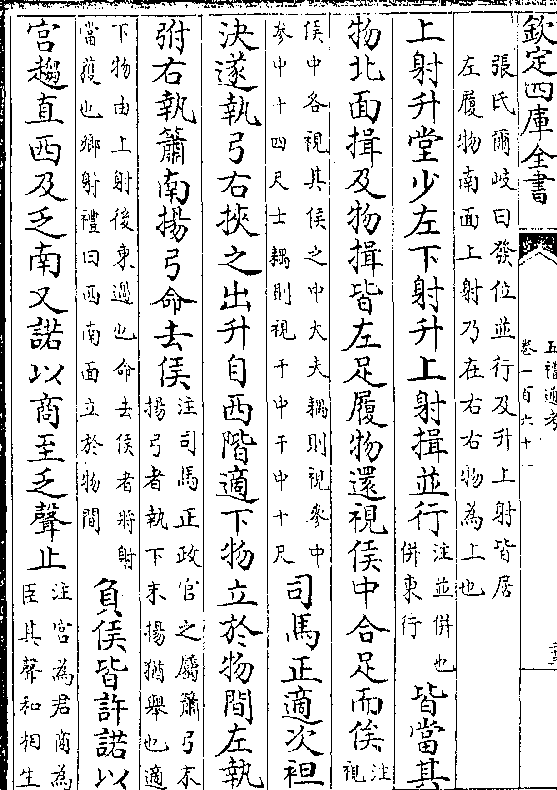 欽定四庫全書
五禮通考
卷一百六十一
張氏爾岐曰發位並行及升上射皆居
左履物南面上射乃在右右物為上也
上射升堂少左下射升上射揖並行
注並併也
併東行
皆當其
物北面揖及物揖皆左足履物還視侯中合足而俟
注
視
侯中各視其侯之中大夫耦則視參中
參中十四尺士耦則視干中干中十尺
司馬正適次袒
決遂執弓右挾之出升自西階適下物立於物間左執
弣右執簫南揚弓命去侯
注司馬正政官之屬簫弓末
揚弓者執下末揚猶舉也適
下物由上射後東過也命去侯者將射
當獲也鄉射禮曰西南面立於物間
負侯皆許諾以
宮趨直西及乏南又諾以商至乏聲止
注宮為君商為
臣其聲和相生